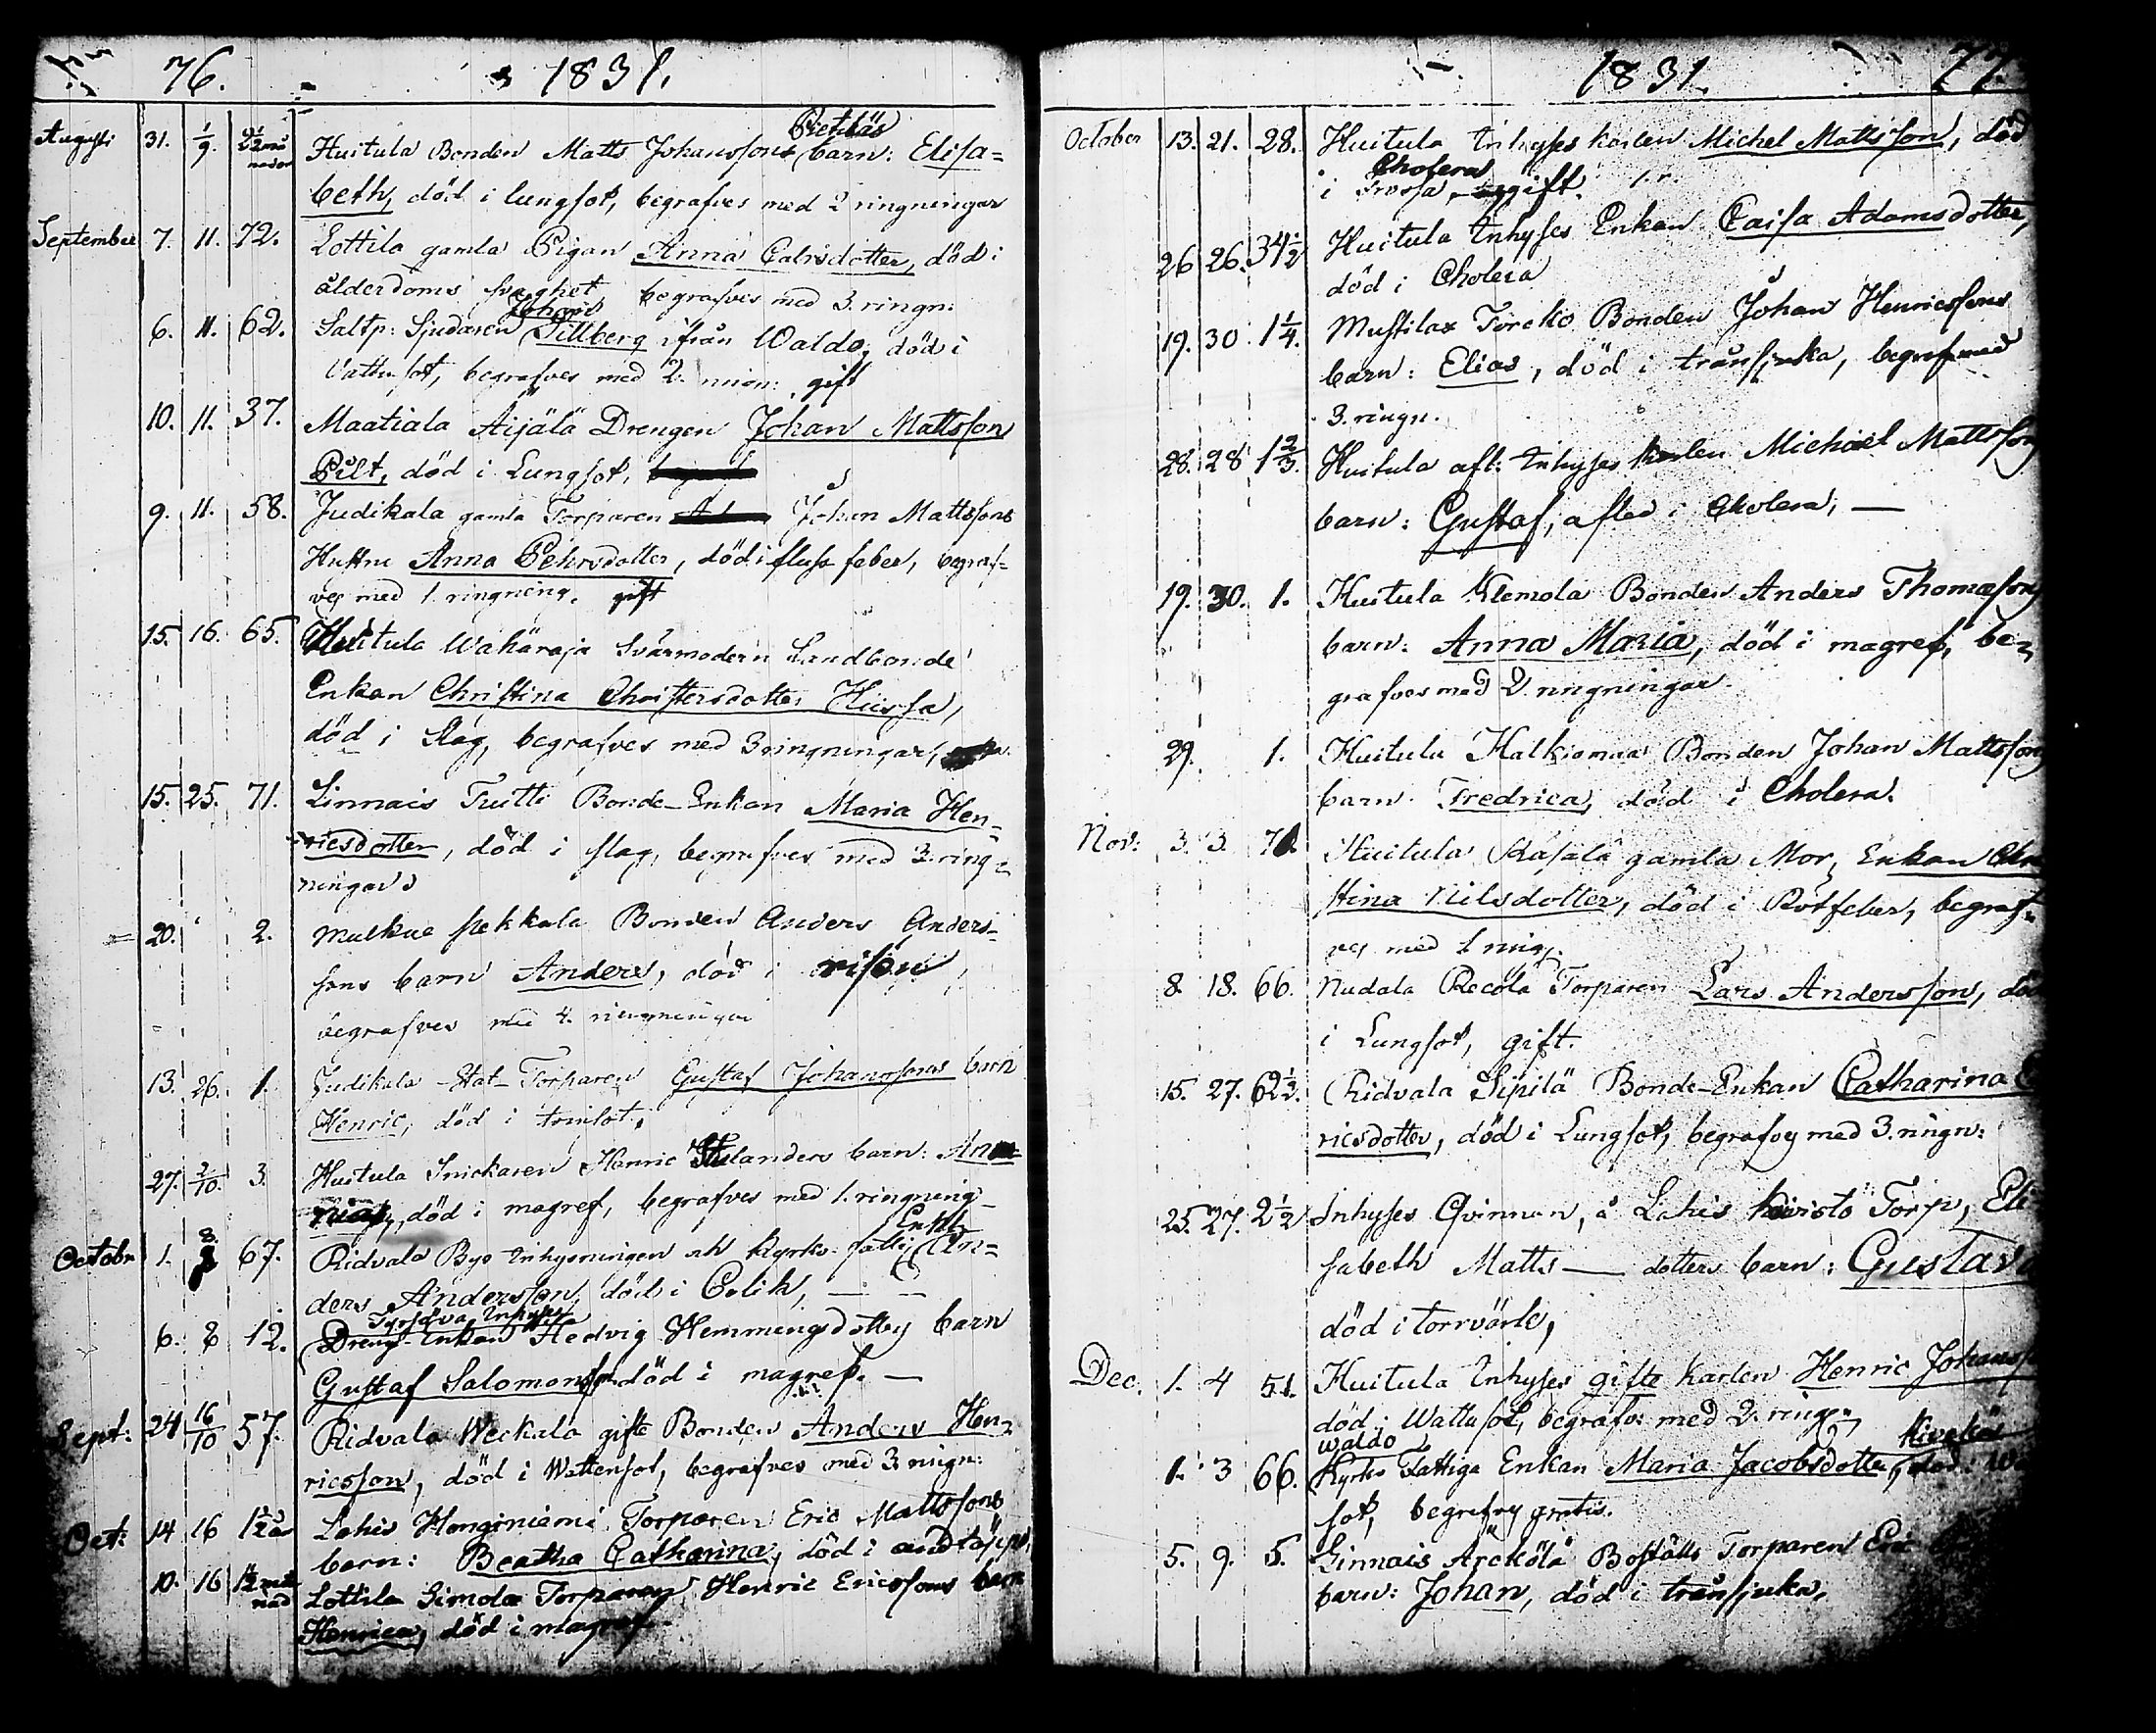 76. 1831.
Augusti 31. 1/9. Huitula Bonden Matts Johanssons Pietiläs barn: Elisa=
beth, död i lungsot, begrafves med 2 ringningar
September 7. 11. 72. Lottila gamla Pigan Anna Calisdotter, död i
ålderdoms svaghet begrafves med 3. ringn:
6. 11. 62. Saltp: Sjudaren Johan Tillberg ifrån Waldo, död i
Vattusot, begrafves med 2. gift
10. 11. 37. Maatiala Äijälä Drengen Johan Mattsson
Pilt, död i Lungsot,
9. 11. 58. Judikala gamla Torparen Johan Mattsons
Hustru Anna Pehrsdotter, död i fluss feber, begraf=
ves med 1. ringning. gift
15. 16. 65. Huitula Wahäraja Svärmodern Landbonde
Enkan Christina Christersdotter Hiissa,
död i Slag, begrafves med 3 ringningar,
15. 25. 71. Linnais Tuitti Bonde-Enkan Maria Hen=
ricsdotter, död i slag, begrafves med 3. ring=
ningar
20. 2. Mulkue Pekkala Bonden Anders Anders=
sons barn Anders, död i risen,
begrafves med 4. ringningar
13. 26. 1. Judikala Stat-Torparen Gustaf Johanssons barn
Henric, död i tvinsot.
27. 2/10. 3. Huitula Snickaren Henric barn:
död i magref, begrafves med 1. ringning
Octobr 1. 8. 67. Ridvala Bys Inhysningen och Kyrko-fattig Enkl. An=
ders Andersson, död i Colik, —
6. 8 12. Tyrisevä Inhyses
Dreng-Enkan Hedvig Hemmingsdotters barn
Gustaf Salomonsson död i magref. —
Sept: 24 16/10 57. Ridvala Weckala gifte Bonden Anders Hen=
ricsson, död i Wattensot, begrafves med 3. ringn:
Oct: 14 16 1½ år Lahis Honginiemi Torparen Eric Mattssons
barn: Beatha Catharina, död i andtäppa,
10. 16 1½ månad Lottila Simola Torparen Henric Ericssons barn
Henrica, död i magref.
1831. 77.
October 13. 21. 28. Huitula Inhyses karlen Michel Mattsson, död
i Cholera gift.
26 26. 34½ Huitula Inhyses Enkan Caisa Adamsdotter,
död i Cholera
19. 30. 1¼. Mustila Torckö Bonden Johan Henricssons
barn: Elias, död i trånsjuka, begraf. med
3. ringn.
28. 28 1⅔. Huitula afl: Inhyses karlen Michael Mattssons
barn: Gustaf, afled i Cholera, —
19. 30. 1. Huitula Klemola Bonden Anders Thomassons
barn: Anna Maria, död i magref, be=
grafves med 2. ringningar.
29. 1. Huitula Halkiomaa Bonden Johan Mattssons
barn Fredrica, död i Cholera.
Nov: 3. 3. Huitula Kasala gamla Mor, Enkan Chri
stina Nilsdotter, död i Rötfeber, begraf=
ves med 1 ring.
8. 18. 66. Nudala Recola Torparen Lars Andersson, död
i Lungsot, gift.
15. 27. 62½. Ridvala Sipilä Bonde-Enkan Catharina
ricsdotter, död i Lungsot, begrafves med 3. ringn:
25. 27. 2½ Inhyses Qvinnan, å Lahis Koivisto Torp, Eli
sabeth Matts — dotters barn: Gustava
död i torrvärk,
Dec. 1. 4 51. Huitula Inhyses gifte karlen Henric Johansson
död i Wattusot, begrafv: med 2. ringn,
1. 3 66. Waldo Kyrko Fattiga Enkan Maria Jacobsdotter Kivekäs, död i
sot, begrafves gratis.
5. 9. 5. Linnais Arckölä Boställs Torparen Eric
barn: Johan, död i trånsjuka,